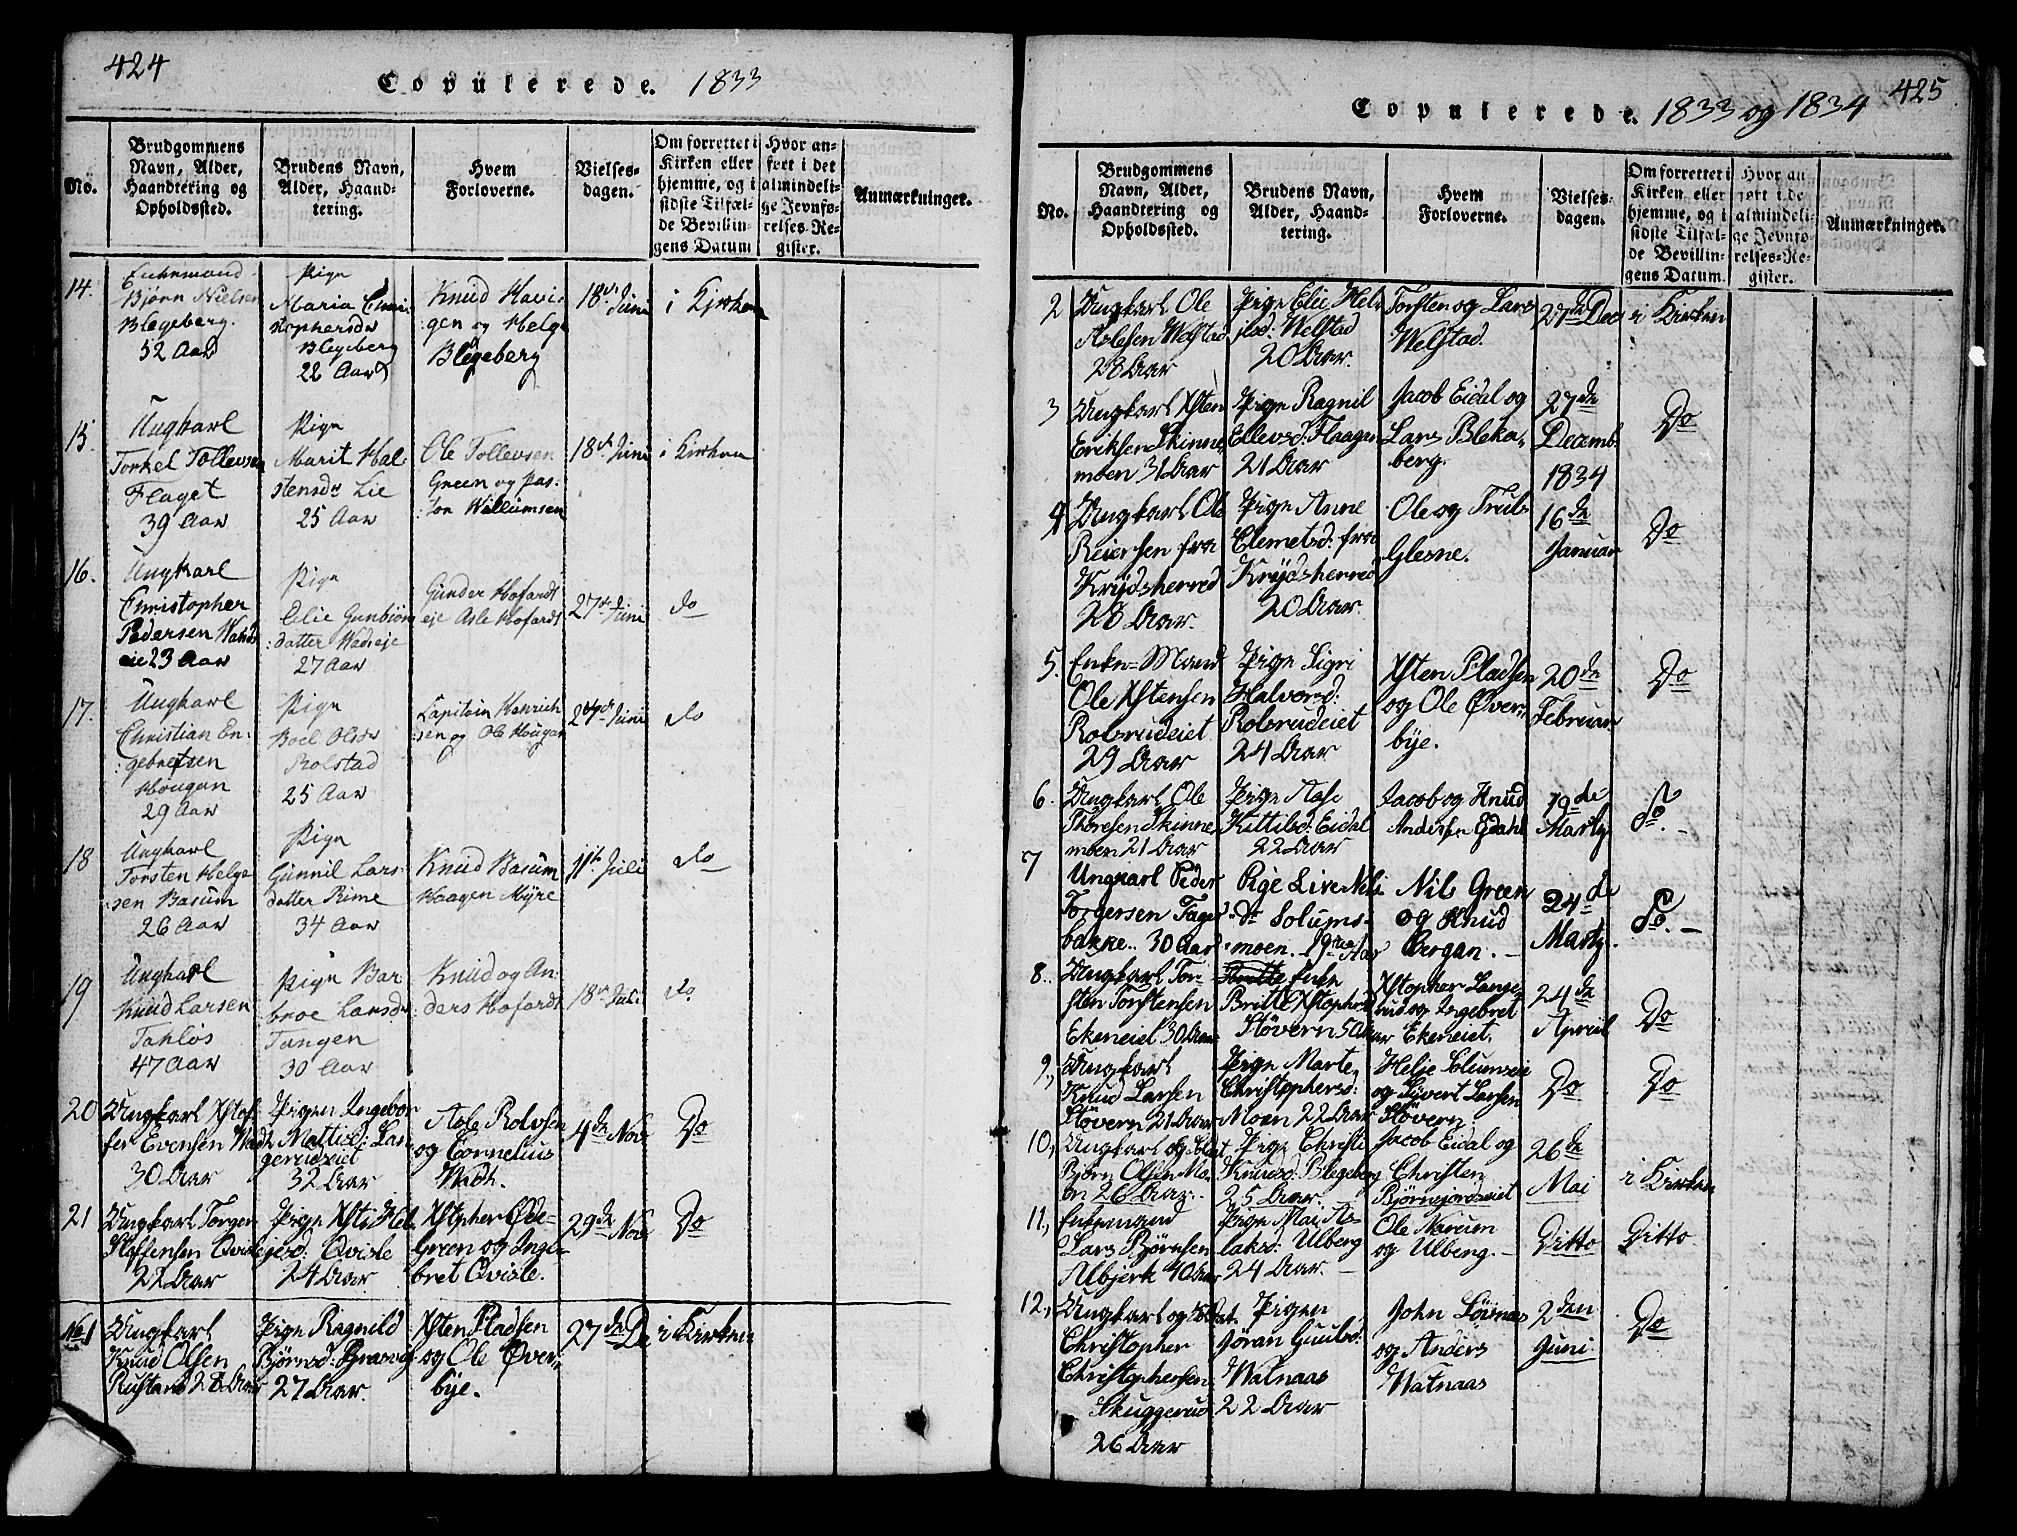 424
Copulerede. 1833
No.
Brudgommens
Navn, Alder,
Haandtering og
Opholdssted.
Brudens Navn,
Alder, Haand-
tering.
Hvem
Forloverne.
Vielses-
dagen.
Om forrettet i
Kirken eller
hjemme, og i
sidste Tilfæl-
de Bevillin-
gens Datum
Hvor an-
ført i det
almindeli-
ge Jevnfø-
relses-Re-
gister.
Anmærkninger.
14.
Enkemand
Bjørn Nielsen
Blegeberg.
52 Aar
Pige
Maria Chri
stophersdr
Blegeberg
22 Aar
Knud Havi
gen og Helge
Blegeberg
18de Juni
i Kirken
15
Ungkarl
Torkel Tollevsen
Flaget
39 Aar
Pige
Marit Hal
stensdr Lie
25 Aar
Ole Tollevsen
Green og Pas:
:tor Willumsen
18de Juni
i Kirken
16.
Ungkarl
Christopher
Pedersen Wads
eie 23 Aar
Pige
Elie Gunbiørns
:datter Wadseie
27 Aar
Gunder Hofardt
eje Asle Hofardt
27de Juni
do
17.
Ungkarl
Christian En-
:gebretsen
Hougan
29 Aar
Pige
Boel Olsdr
Rolstad
25 Aar
Capitain Henrich
:sen og Ole Hougan
27de Juni
do
18
Ungkarl
Torsten Helge
sen Basum
26 Aar
Pige
Gunnil Lars-
datter Rime
34 Aar
Knud Basum
Haagen Myre
11te Juli
do
19
Ungkarl
Knud Larsen
Tahløs
47 Aar
Pige Bar
broe Larsdr
Tangen
30 Aar
Knud og An:
:ders Hofardt
18de Juli
do
20
Ungkarl Xstof
fer Evensen Wad
30 Aar
Pigen Ingebor
Mattisd: Lan
gerudeiet
32 Aar
Asle Rolvsen
og Cornelius
Wadh.
4de Nov
Do
21
Ungkarl Torger
Stoffensen Qvisle
22 Aar
Pige Xsti Hel
jesd: Qvisle
24 Aar
Xstopher Øde-
Green og Inge-
bret Qvisle.
29de Nov
Do
No. 1
Ungkarl
Knud Olsen
Rustand 28 Aar
Pige Ragnild
Bjørnsd: Græsvig
27 Aar.
Xsten Pladsen
og Ole Øver-
bye.
27de De
i Kirken
425
Copulerede. 1833 og 1834
No.
Brudgommens
Navn, Alder,
Haandtering og
Opholdssted.
Brudens Navn,
Alder, Haand-
tering.
Hvem
Forloverne.
Vielses-
dagen.
Om forrettet i
Kirken eller
hjemme, og i
sidste Tilfæl-
de Bevillin-
gens Datum.
Hvor an
ført i de
almindeli-
ge Jevnfø-
relses-Re-
gister.
Anmærkninger.
2
Ungkarl Ole
Aslesen Welstad
28 Aar
Pige Elie Hel
jesd: Welstad
20 Aar.
Torsten og Lars
Welstad.
27de Dec
i Kirken
3
Ungkarl Xsten
Eriksen Skinne
moen 31 Aar
Pige Ragnil
Ellevsd: Flaagen
21 Aar
Jacob Eidal og
Lars Bleka,
berg.
27de
Decemb
Do
1834
4
Ungkarl Ole
Reiersen fra
Krydsherred
28 Aar.
Pige Anne
Clemetsd: fra
Krydsherred
20 Aar.
Ole og Truls
Glesne.
16de
Januar
Do
5.
Enke-Mand
Ole Xstensen
Rolsrudeiet
29 Aar
Pige Sigri
Halvorsd:
Rolsrudeiet
24 Aar
Xsten Pladsen
og Ole Øver-
bye.
20de
Februar
Do
6.
Ungkarl Ole
Thoresen Skinne
moen 21 Aar
Pige Aase
Kittilsd: Eidal
22 Aar
Jacob og Knud
Andersen Eidahl
19de
Martz
Do. –
7
Ungkarl Peder
Torgersen Fager
bakke.. 30 Aar
Pige Live Nils
dr Solums-
moen. 19 Aar
Nils Green
og Knud
Bergan. –
24de
Martz.
Do. –
8.
Ungkarl Tor-
sten Torstensen
Ekeneiet 30 Aar
Enke
Britte Xstophersd
Støvern 50 Aar
Xstopher Lange-
rud og Ingebret
Ekeneiet.
24de
April
Do
9,
Ungkarl
Knud Larsen
Støvern 21 Aar
Pige Marte
Christophersd:
Moen 22 Aar
Helje Slumseie
og Syvert Larsen
Støvern.
Do
Do
10,
Ungkarl og Soldat
Bjørn Olsen Mo-
en 26 Aar.
Pige Christi
Knudsd: Blegeberg
25 Aar.
Jacob Eidal og
Christen
Bjørnejordseiet
26de
Mai
i Kirken
11,
Enkemand
Lars Bjørnsen
Albjerk 40 Aar
Pige Mai As-
laksd: Ulberg
24 Aar. –
Ole Narum
og Ulberg. –
Ditto
Ditto
12,
Ungkarl og Soldat.
Christopher
Christophersen
Skuggerud
26 Aar
Pigen
Jøran Guulsd:
Watnaas
22 Aar
John Løvnas
og Anders
Watnaas
2den
Juni
Do